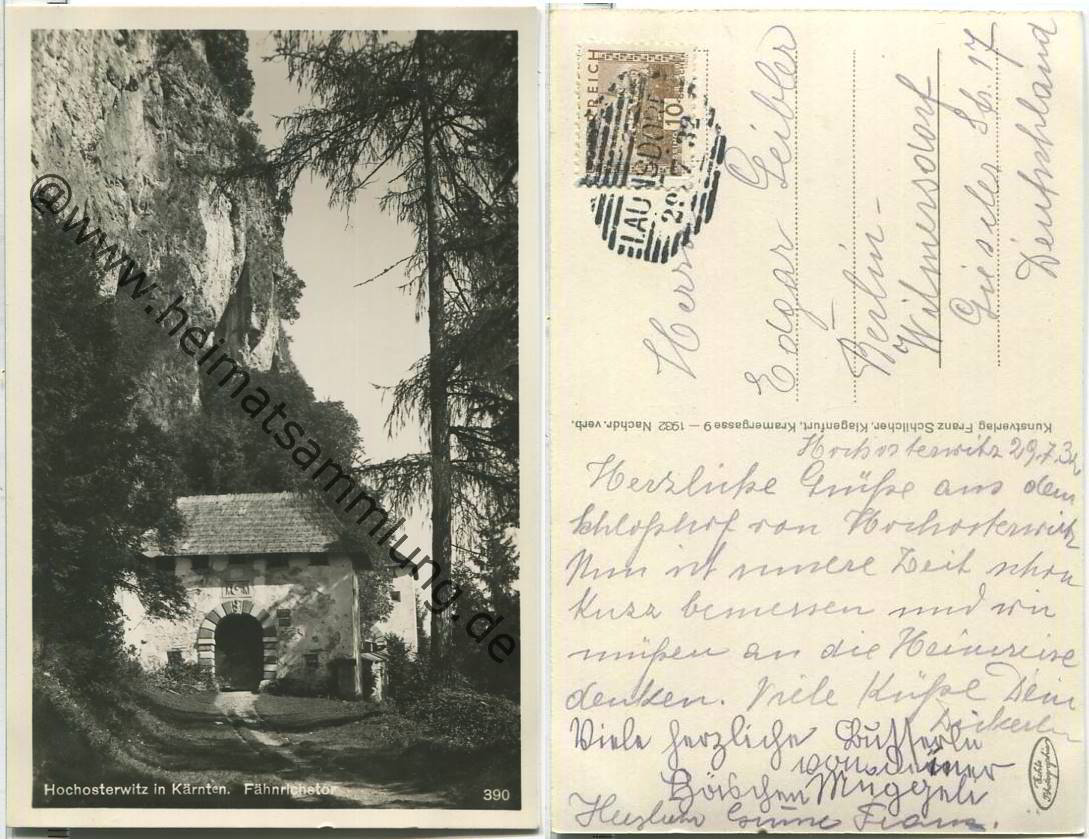 @www.heimatsammlung.de
Hochosterwitz in Kärnten. Fähnrichstor
390
REICH
10
LAUNSDORF
29
Herrn
Edgar Geibler
Berlin-
Wilmersdorf
Gieseler Str. 17
Deutschland
Kunstverlag Franz Schilcher, Klagenfurt, Kramergasse 9 — 1932 Nachdr. verb.
Hochosterwitz 29.7.32
Herzliche Grüße aus dem
Schloßhof von Hochosterwitz
Nun ist unsere Zeit schon
kurz bemessen und wir
müßen an die Heimreise
denken. Viele Küße Dein
Dickerln
Viele herzliche Busserln
von deiner
Muggeli
Herzliche Grüsse Franz.